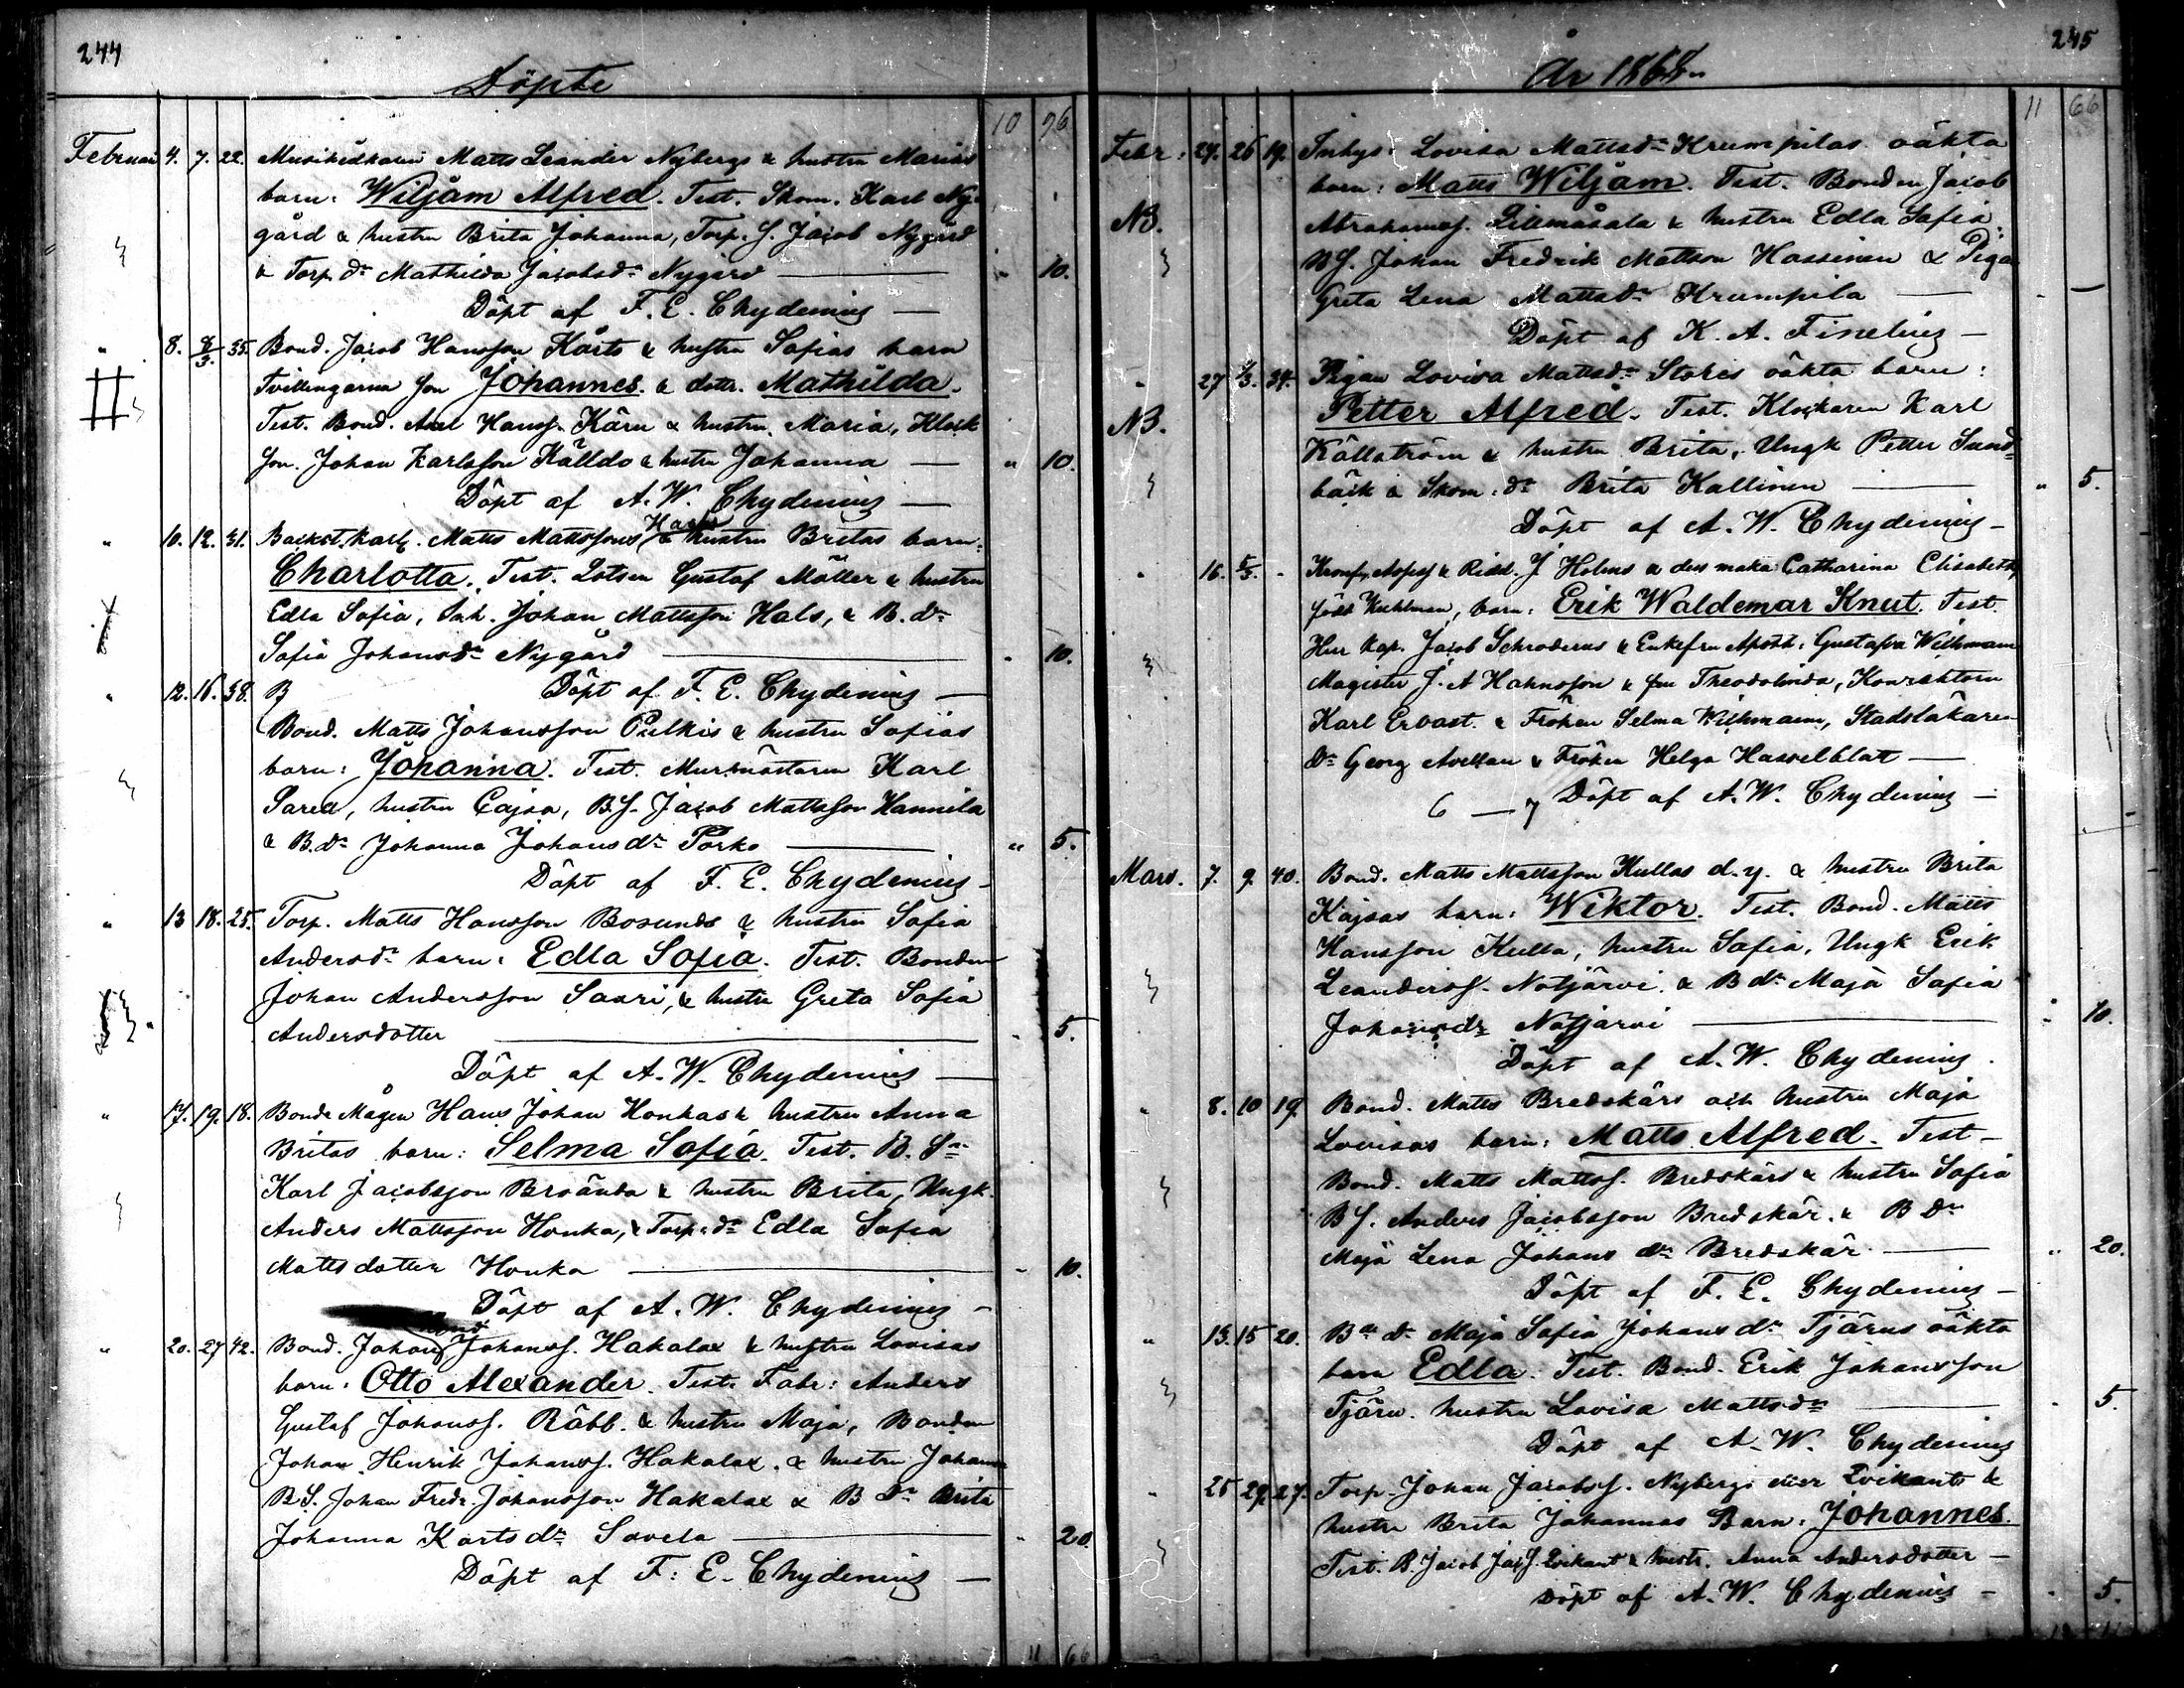 244
Döpte
10 96
Februari 4. 7. 22. Musikidkaren Matts Leander Nybergs & hustru Marias
barn: Wiljam Alfred. Test. Skom. Karl Ny-
gård & hustru Brita Johanna, Torp. S. Jacob Nygård
& Torp. dr Mathilda Jacobsdr Nygård — " 10.
Döpt af F. E. Chydenius —
" 8. 8/3. 35. Bond. Jacob Hansson Kårts & hustru Sofias barn
Tvillingarna son Johannes & dottr. Mathilda.
Test. Bond. Axel Hanss. Kärn & hustru Maria, Klock
son. Johan Karlsson Källdo & hustru Johanna — " 10.
Döpt af A. W. Chydenius —
" 10. 12. 31. Backst. karl. Matts Mattssons Hals & hustru Britas barn:
Charlotta. Test. Lotsen Gustaf Möller & hustru
Edla Sofia, Inh. Johan Mattsson Hals, & B. dr
Sofia Johansdr Nygård — " 10.
" 12. 16. 38. B Döpt af F. E. Chydenius —
Bond. Matts Johansson Pulkis & hustru Sofias
barn: Johanna. Test. Murmästaren Karl
Sared, hustru Cajsa, B.S. Jacob Mattsson Hannila
& B. dr Johanna Johansdr Porko — " 5.
Döpt af F. E. Chydenius —
" 13 18. 25. Torp. Matts Hansson Bosunds & hustru Sofia
Andersdr barn: Edla Sofia. Test. Bonden
Johan Andersson Saari, & hustru Greta Sofia
Andersdotter — " 5.
Döpt af A. W. Chydenius —
" 17. 19. 18. Bonde Mågen Hans Johan Honkas & hustru Anna
Britas barn: Selma Sofia. Test. B. Sn
Karl Jacobsson Broända & hustru Brita, Ungk.
Anders Mattsson Honka, & Torp. dr Edla Sofia
Matts dotter Honka — " 10.
Döpt af A. W. Chydenius —
" 20. 27 42. Bond. Johan Johanss. Hakalax & hustru Lovisas
barn: Otto Alexander. Test. Fabr: Anders
Gustaf Johanss. Räbb. & hustru Maja, Bonden
Johan Henrik Johanss. Hakalax. & hustru Johanna
B S. Johan Fredr. Johansson Hakalax & B Dr Brita
Johanna Karlsdr Savela — " 20.
Döpt af F. E. Chydenius —
11 66
245
År 1868
11 66
Febr: 24. 26 19. Inhys: Lovisa Mattsdr Krumpilas oäkta
barn: Matts Wiljam. Test. Bonden Jacob
NB. Abrahamss. Lillmåsala & hustru Edla Sofia,
B S. Johan Fredrik Mattson Hassinen & Pigan
Greta Lena Mattsdr Krumpila — " —
Döpt af K. A. Finelius —
" 27 1/3. 34. Pigan Lovisa Mattsdr Stores oäkta barn:
NB. Petter Alfred. Test. Klockaren Karl
Källström & hustru Brita, Ungk Petter Sund-
bäck & Skom: dr Brita Kallinen — " 5.
Döpt af A. W. Chydenius —
" 16. 5/3. - & Ridd. J Holms & dess maka Catharina Elisabeth,
född barn: Erik Waldemar Knut. Test.
Jacob Schroderus & Enkefru Gustafva Wichmann
Magister J. A Hahnsson & fru Theodolinda, Konrektorn
Karl Ervast. & Fröken Selma Wichmann, Stadsläkaren
Dr Georg Avellan & Fröken Helga Hasselblat —
6 — 7 Döpt af A. W. Chydenius —
Mars. 7. 9. 40. Bond. Matts Mattsson Kullas d. y. & hustru Brita
Kajsas barn: Wiktor. Test. Bond. Matts
Hansson Kulla, hustru Sofia, Ungk Erik
Leanderss. Notjärvi & B dr Maja Sofia
Johansdr Notjärvi — " 10.
Döpt af A. W. Chydenius.
" 8. 10 19 Bond. Matts Bredskärs och hustru Maja
Lovisas barn: Matts Alfred. Test —
Bond. Matts Mattss. Bredskärs & hustru Sofia
B S. Anders Jacobsson Bredskär. & B Dr
Maja Lena Johans dr Bredskär — " 20.
Döpt af F. E. Chydenius —
" 13. 15 20. Bn dr Maja Sofia Johans dr Tjärus oäkta
barn Edla. Test. Bond. Erik Johansson
Tjäru. hustru Lovisa Mattsdr — " 5.
Döpt af A. W. Chydenius
" 25 29. 27. Torp. Johan Jacobss. Nybergs eller Lvikants &
hustru Brita Johannas Barn: Johannes.
Test. B. Jacob Jacss. Lvikant & hustr. Anna Andersdotter —
Döpt af A. W. Chydenius — " 5.